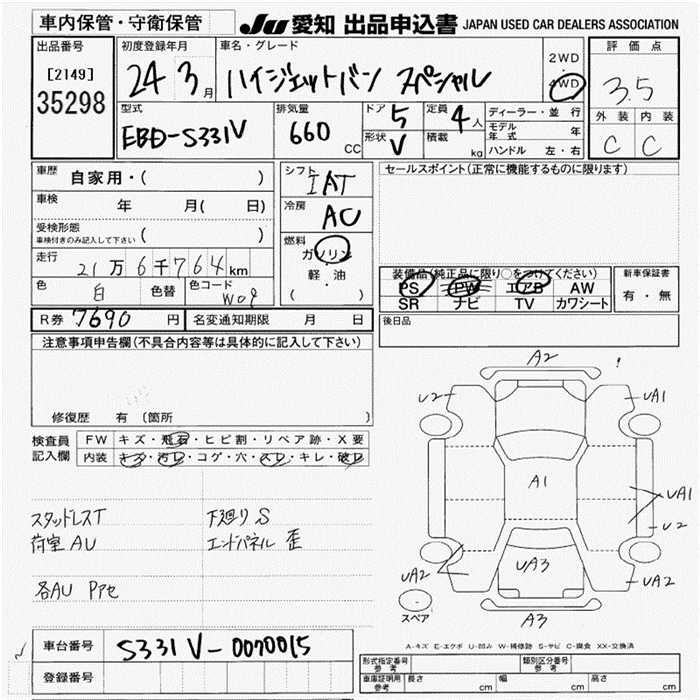 車内保管・守衛保管
JU 愛知 出品申込書 JAPAN USED CAR DEALERS ASSOCIATION
出品番号
[2149]
35298
初度登録年月
24 3月
車名・グレード
ハイジェットバン スペシャル
2WD
4WD
評価点
3.5
外装 内装
C C
型式
EBD-S331V
排気量
660 CC
ドア 5
形状 V
定員 4人
積載 kg
ディーラー・並行
モデル年式 年
ハンドル 左・右
車歴 自家用・( )
車検 年 月( 日)
受検形態
車検付きのみ記入して下さい ( )
走行 21万6千764km
色 白 色替 色コード W09
シフト IAT
冷房 AC
燃料
ガソリン
・
軽・油
( )
セールスポイント(正常に機能するものに限ります)
装備品(純正品に限り○をつけてください)
PS PW エアB AW
SR ナビ TV カワシート
新車保証書
有・無
R券 7690 円 名変通知期限 月 日
後日品
注意事項申告欄(不具合内容等は具体的に記入して下さい)
修復歴 有 (箇所 )
検査員記入欄
FW キズ・飛石・ヒビ割・リペア跡・X要
内装 キズ・汚レ・コゲ・穴・スレ・キレ・破レ
スタッドレスT 下廻りS
荷室AU エンドパネル 歪
各AU Pアセ
A2
U2 UA1
A1
UA1
U2
UA2 UA3 UA2
スペア A3
A-キズ E-エクボ U-凹み W-補修跡 S-サビ C-腐食 XX-交換済
車台番号 S331V-0070015
登録番号
形式指定番号 参考 類別区分番号 参考
車庫証明用 参考 長さ cm 幅 cm 高さ cm